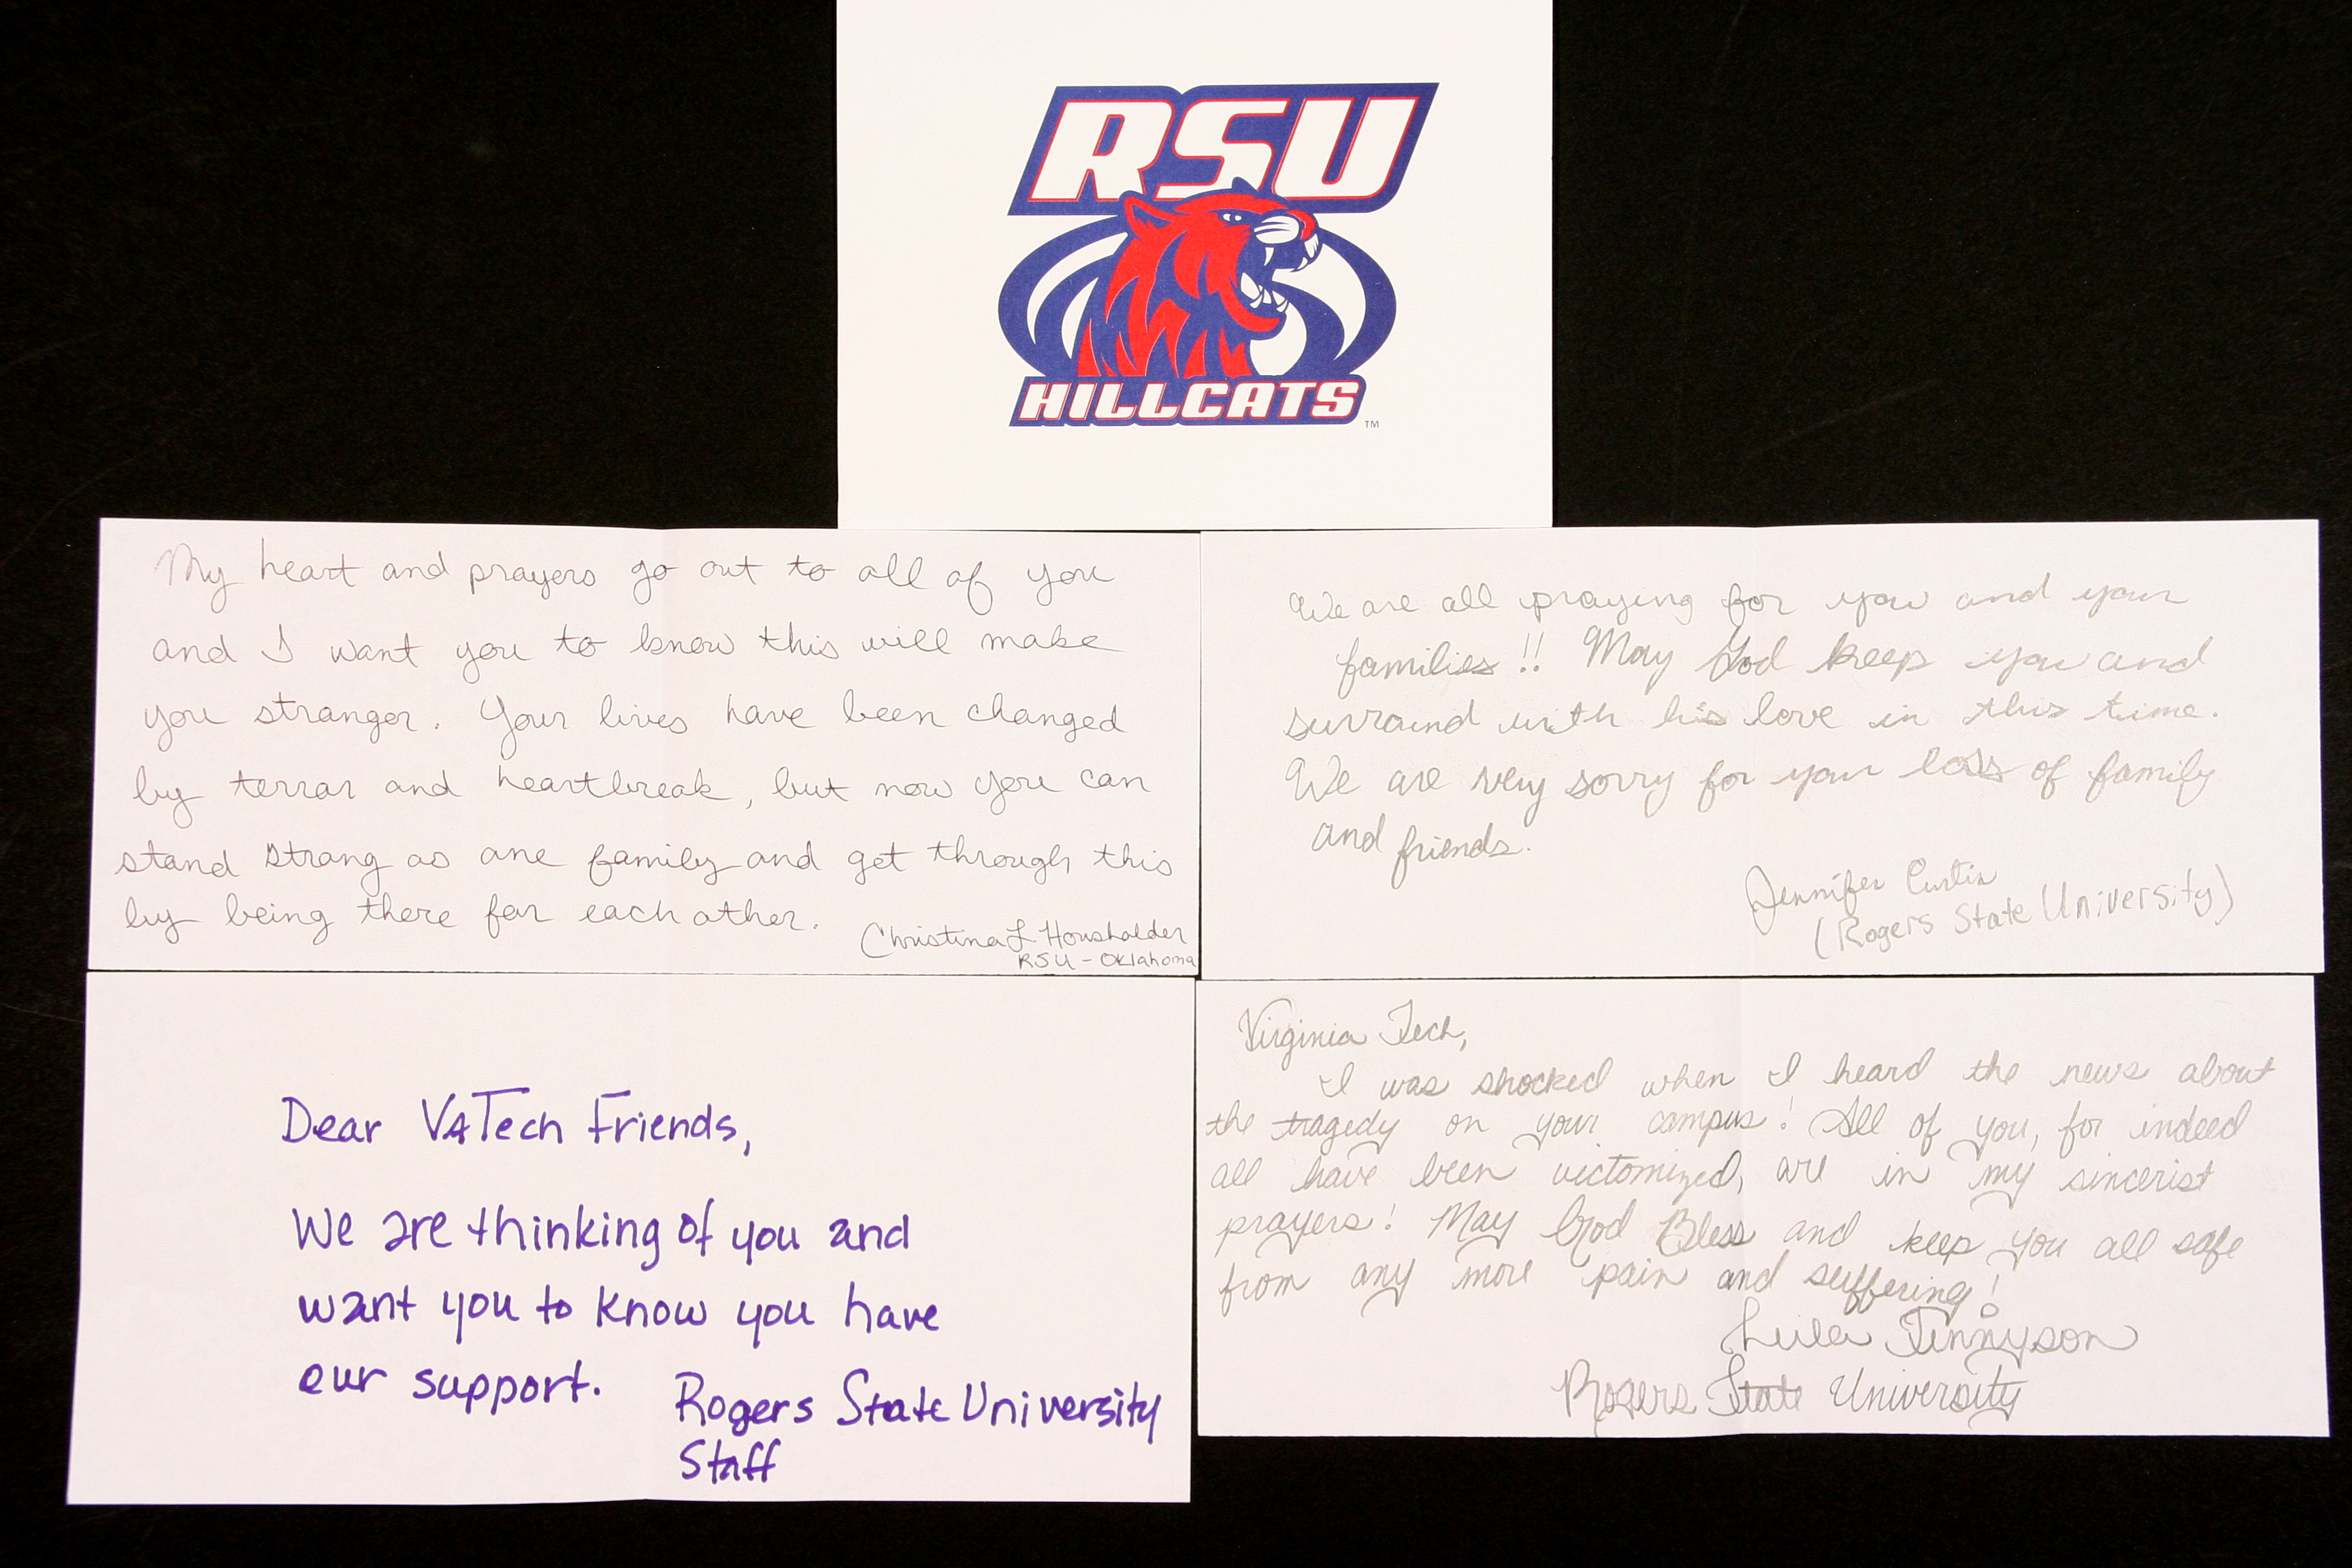 RSU
HILLCATS
TM
My heart and prayers go out to all of you
and I want you to know this will make
you stranger. Your lives have been changed
by terror and heartbreak, but now you can
stand strong as one family and get through this
by being there for each other.
Christina L Housholder
RSU - Oklahoma
We are all praying for you and your
families!! May God keep you and
surround with his love in this time.
We are very sorry for your loss of family
and friends.
Jennifer Curtis
(Rogers State University)
Dear VATech Friends,
We are thinking of you and
want you to know you have
our support.
Rogers State University
Staff
Virginia Tech,
I was shocked when I heard the news about
the tragedy on your campus! All of you, for indeed
all have been victomized, are in my sincerist
prayers! May God Bless and keep you all safe
from any more pain and suffering!
Tennyson
Rogers State University